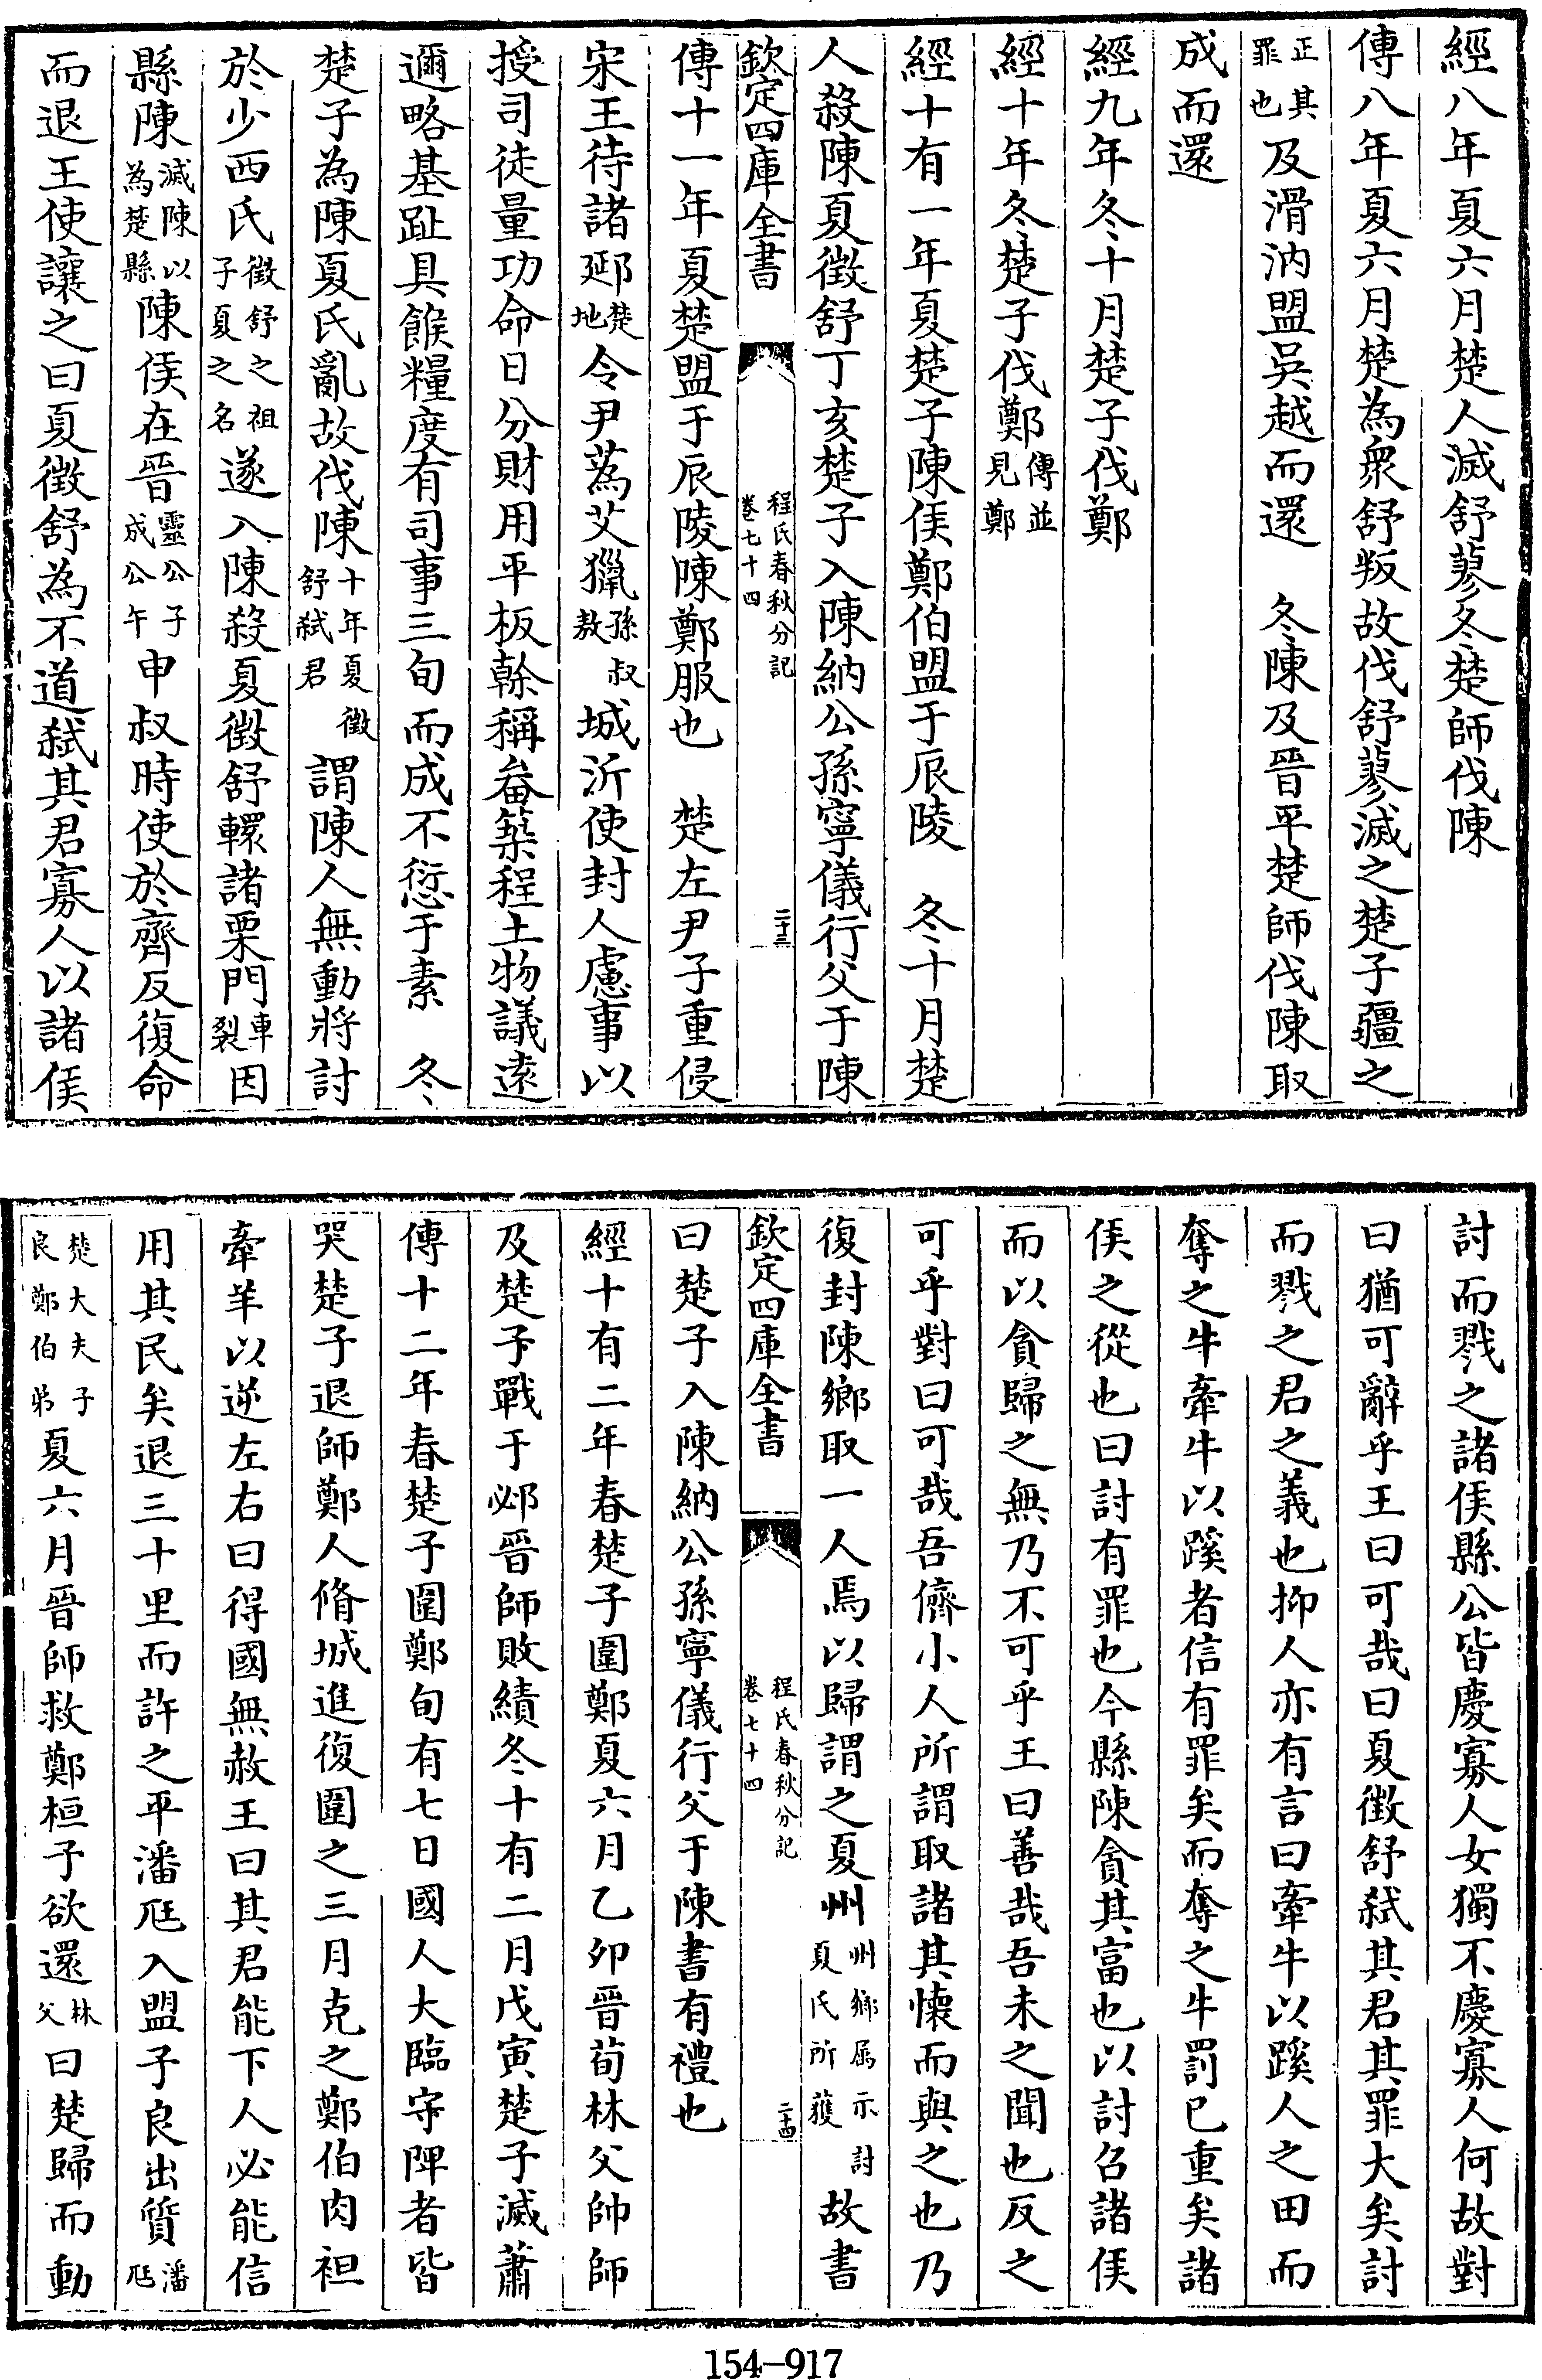 經八年夏六月楚人滅舒蓼冬楚師伐陳
傳八年夏六月楚為衆舒叛故伐舒蓼滅之楚子疆之
正其罪也及滑汭盟吳越而還　冬陳及晉平楚師伐陳取
成而還
經九年冬十月楚子伐鄭
經十年冬楚子伐鄭傳並見鄭
經十有一年夏楚子陳侯鄭伯盟于辰陵　冬十月楚
人殺陳夏徵舒丁亥楚子入陳納公孫寧儀行父于陳
欽定四庫全書　程氏春秋分記卷七十四　二十三
傳十一年夏楚盟于辰陵陳鄭服也　楚左尹子重侵
宋王待諸郔楚地令尹蒍艾獵孫叔敖城沂使封人慮事以
授司徒量功命日分財用平板榦稱畚築程土物議遠
邇略基趾具餱糧度有司事三旬而成不愆于素　冬
楚子為陳夏氏亂故伐陳十年夏徵舒弑君謂陳人無動將討
於少西氏徵舒之祖子夏之名遂入陳殺夏徵舒轘諸栗門車裂因
縣陳滅陳以為楚縣陳侯在晉靈公子成公午申叔時使於齊反復命
而退王使讓之曰夏徵舒為不道弑其君寡人以諸侯
討而戮之諸侯縣公皆慶寡人女獨不慶寡人何故對
曰猶可辭乎王曰可哉曰夏徵舒弑其君其罪大矣討
而戮之君之義也抑人亦有言曰牽牛以蹊人之田而
奪之牛牽牛以蹊者信有罪矣而奪之牛罰已重矣諸
侯之從也曰討有罪也今縣陳貪其富也以討召諸侯
而以貪歸之無乃不可乎王曰善哉吾未之聞也反之
可乎對曰可哉吾儕小人所謂取諸其懷而與之也乃
復封陳鄉取一人焉以歸謂之夏州州鄉屬示討夏氏所獲故書
欽定四庫全書　程氏春秋分記卷七十四　二十四
曰楚子入陳納公孫寧儀行父于陳書有禮也
經十有二年春楚子圍鄭夏六月乙卯晉荀林父帥師
及楚子戰于邲晉師敗績冬十有二月戊寅楚子滅蕭
傳十二年春楚子圍鄭旬有七日國人大臨守陴者皆
哭楚子退師鄭人脩城進復圍之三月克之鄭伯肉袒
牽羊以逆左右曰得國無赦王曰其君能下人必能信
用其民矣退三十里而許之平潘尫入盟子良出質潘尫
楚大夫子良鄭伯弟夏六月晉師救鄭桓子欲還林父曰楚歸而動
154-917